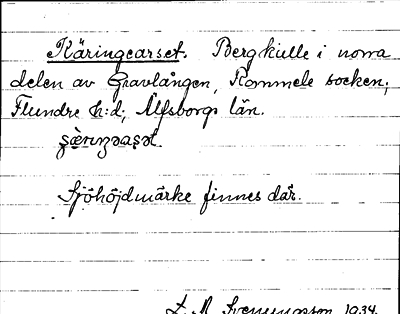 Käringearset. Bergkulle i norra
delen av Gravlången, Rommele socken;
Flundre h:d; Älfsborgs län.
Sjöhöjdmärke finnes där.
1934.